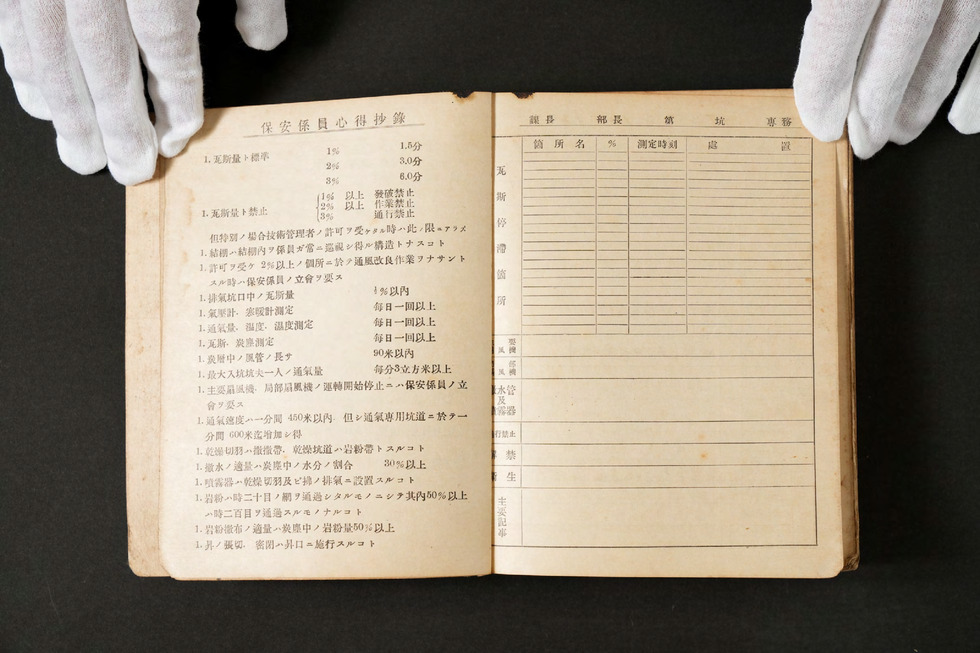 保安係員心得抄錄
1. 瓦斯量ト標準
1% 1.5分
2% 3.0分
3% 6.0分
1. 瓦斯量ト禁止
1% 以上 發破禁止
2% 以上 作業禁止
3% 通行禁止
但特別ノ場合技術管理者ノ許可ヲ受ケタル時ハ此ノ限ニアラス
1. 結棚ハ結棚内ヲ係員ガ常ニ巡視シ得ル構造トナスコト
1. 許可ヲ受ケ 2%以上ノ個所ニ於テ通風改良作業ヲナサント
スル時ハ保安係員ノ立會ヲ要ス
1. 排氣坑口中ノ瓦斯量 %以內
1. 氣壓計. 寒暖計測定 每日一回以上
1. 通氣量. 溫度. 濕度測定 每日一回以上
1. 瓦斯. 炭塵測定 每日一回以上
1. 炭層中ノ風管ノ長サ 90米以內
1. 最大入坑坑夫一人ノ通氣量 每分3立方米以上
1. 主要扇風機. 局部扇風機ノ運轉開始停止ニハ保安係員ノ立
會ヲ要ス
1. 通氣速度ハ一分間 450米以內. 但シ通氣專用坑道ニ於テ一
分間 600米迄增加シ得
1. 乾燥切羽ハ撒撒帶. 乾燥坑道ハ岩粉帶トスルコト
1. 撒水ノ適量ハ炭塵中ノ水分ノ割合 30%以上
1. 噴霧器ハ乾燥切羽及ビ拂ノ排氣ニ設置スルコト
1. 岩粉ハ時二十目ノ網ヲ通過シタルモノニシテ其內50%以上
ハ時二百目ヲ通過スルモノナルコト
1. 岩粉撒布ノ適量ハ炭塵中ノ岩粉量50%以上
1. 昇ノ張切. 密閉ハ昇口ニ施行スルコト
課長 部長 第 坑 專務
箇所名 % 測定時刻 處置
瓦斯停滯箇所
要
風機
部
風機
水管
及
噴霧器
行禁止
禁
生
主要記事